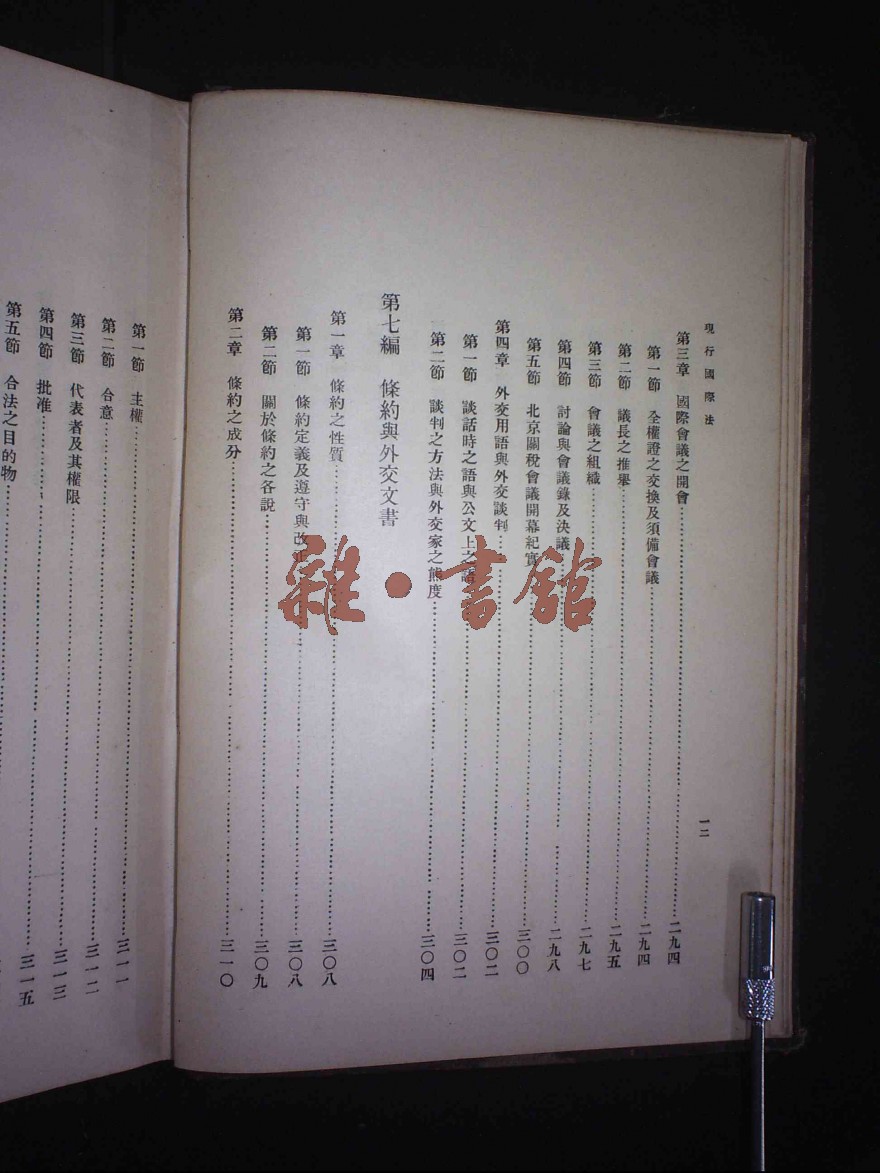 現行國際法
一二
第三章　國際會議之開會……二九四
第一節　全權證之交換及須備會議……二九四
第二節　議長之推舉……二九五
第三節　會議之組織……二九七
第四節　討論與會議錄及決議……二九八
第五節　北京關稅會議開幕紀實……三〇〇
第四章　外交用語與外交談判……三〇二
第一節　談話時之語與公文上之語……三〇二
第二節　談判之方法與外交家之態度……三〇四
第七編　條約與外交文書
第一章　條約之性質……三〇八
第一節　條約定義及遵守與改正……三〇八
第二節　關於條約之各說……三〇九
第二章　條約之成分……三一〇
第一節　主權……三一一
第二節　合意……三一二
第三節　代表者及其權限……三一三
第四節　批准……三一三
第五節　合法之目的物……三一五
雜·書館